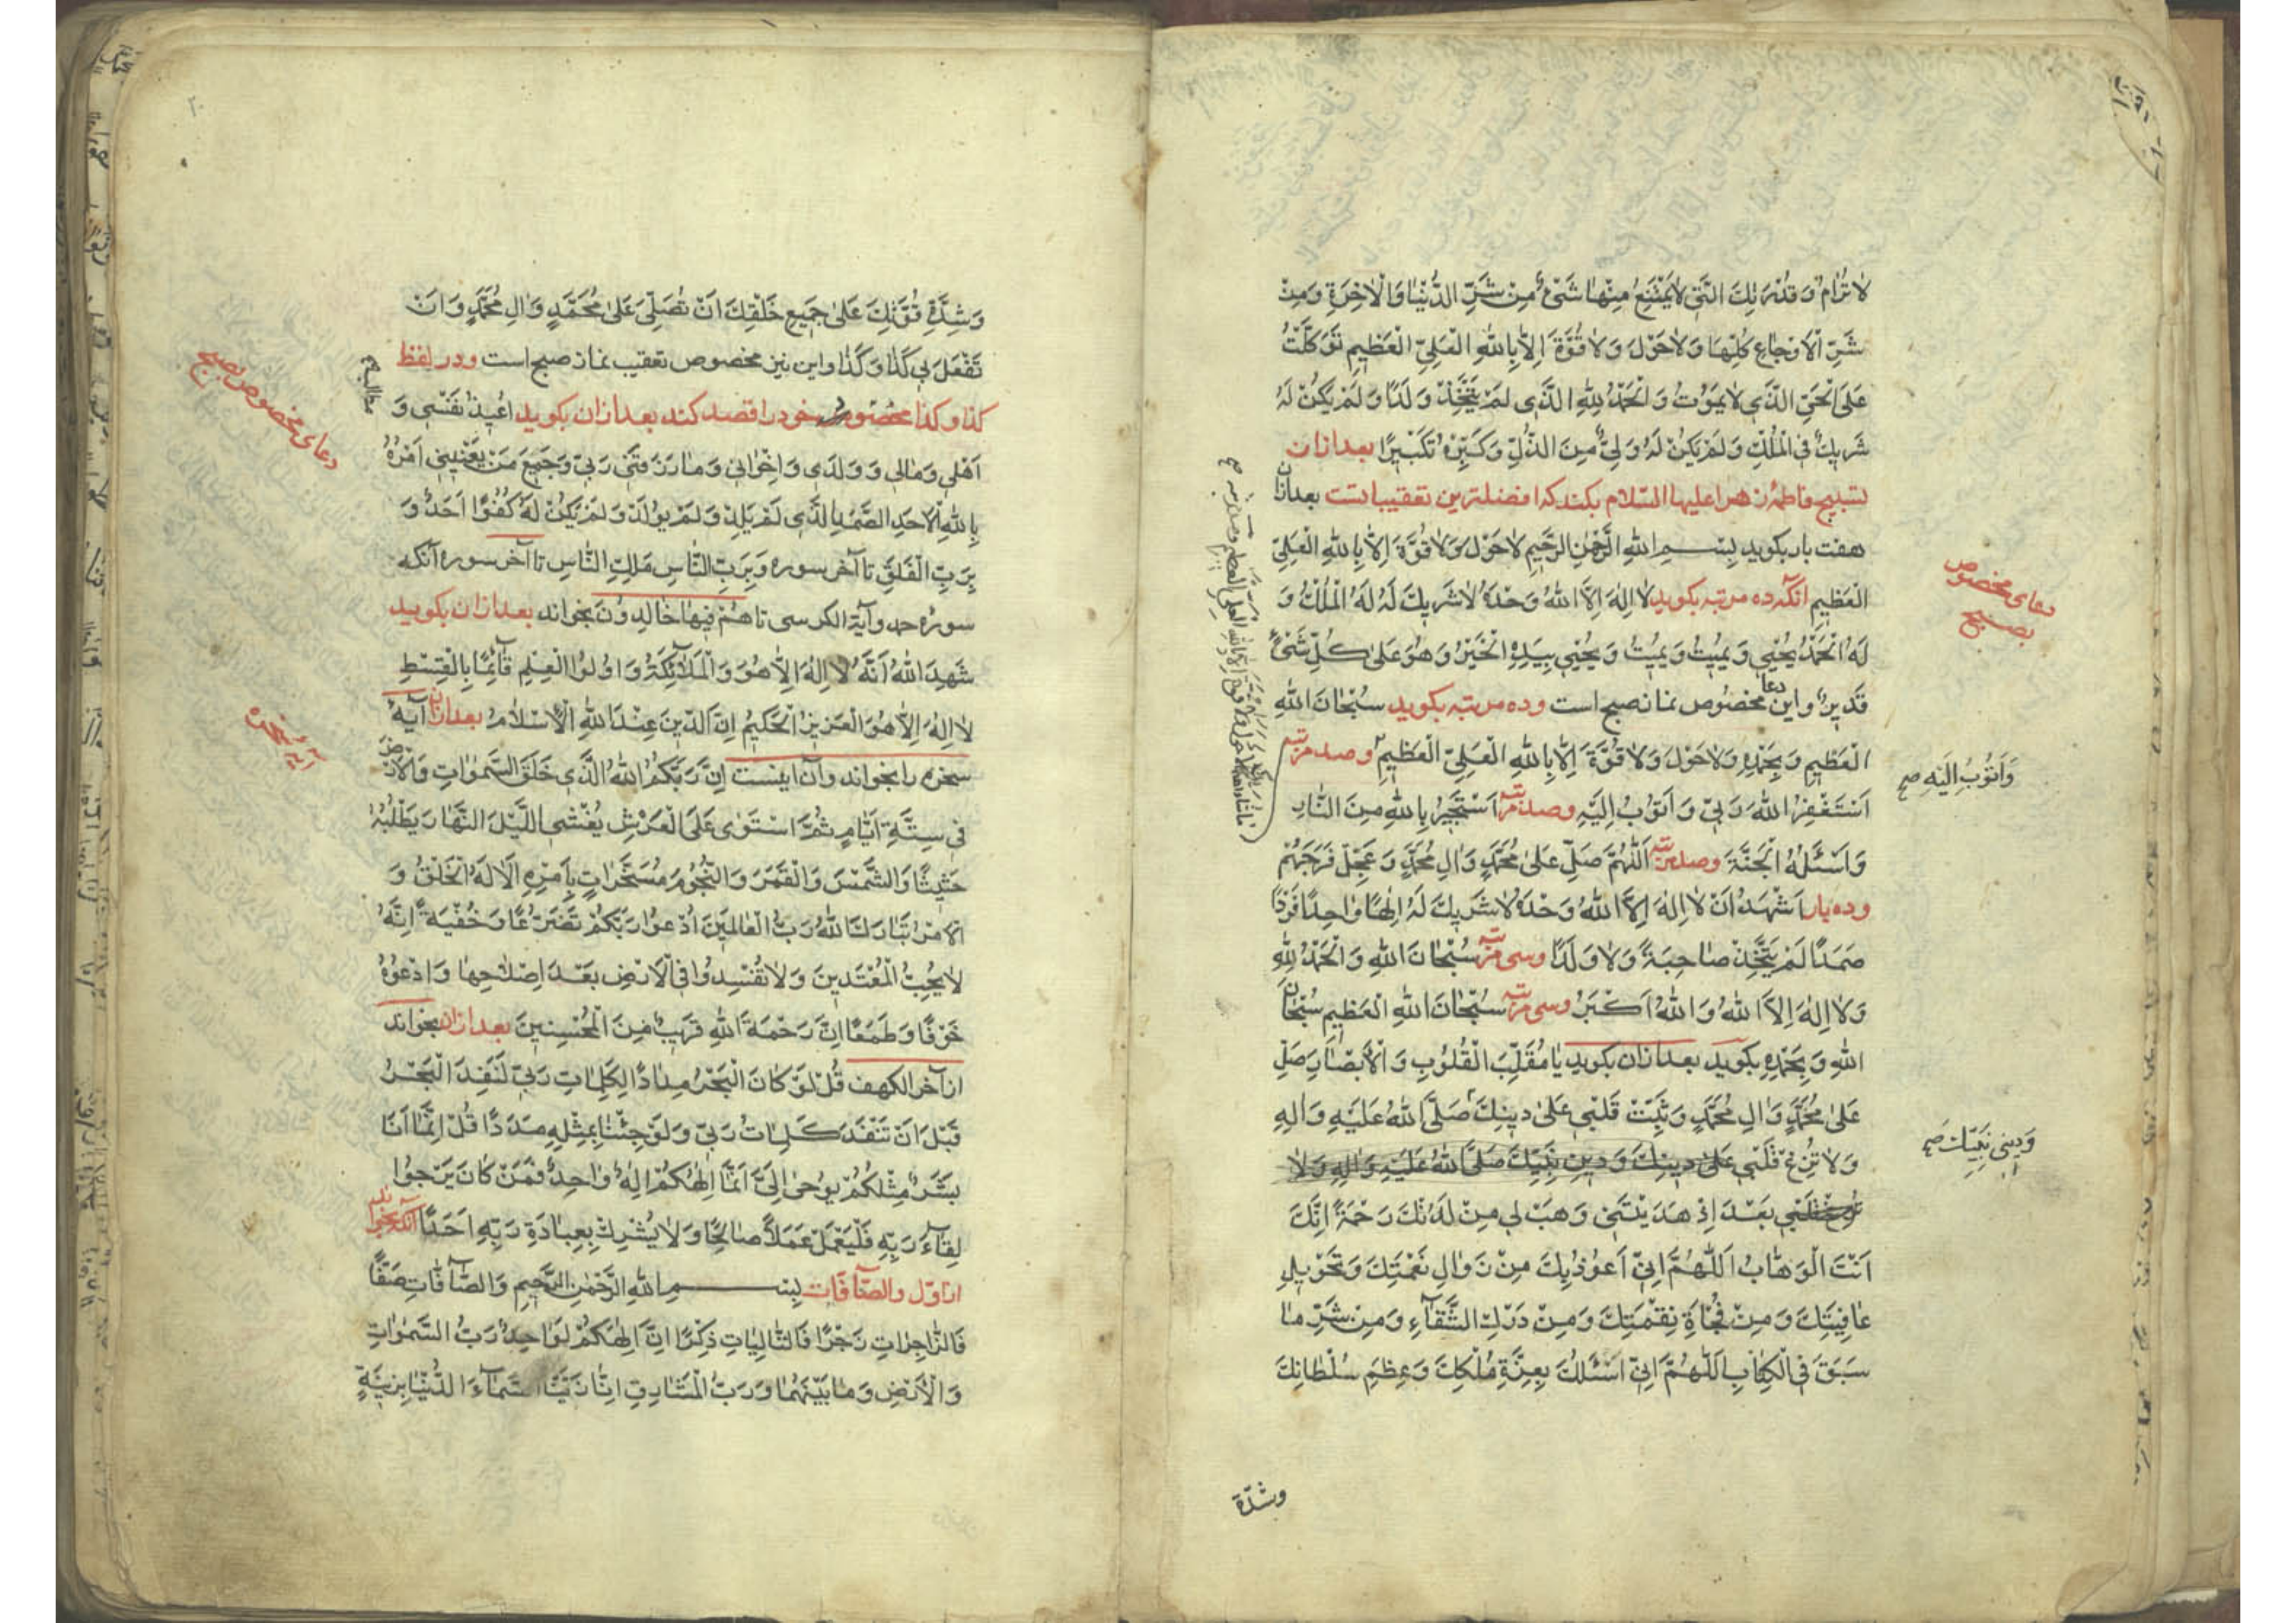 لا تُرٰامُ وَ قُدْرَتِكَ الَّتي لا يَمْتَنِعُ مِنْها شَيْءٌ مِنْ شَرِّ الدُّنْيٰا وَالْآخِرَةِ وَمِنْ
شَرِّ الْأَوْجٰاعِ كُلِّهٰا وَلا حَوْلَ وَلا قُوَّةَ اِلّا بِاللهِ الْعَلِيِّ الْعَظيمِ تَوَكَّلْتُ
عَلَى الْحَيِّ الَّذي لا يَمُوتُ وَ الْحَمْدُ لِلّٰهِ الَّذي لَمْ يَتَّخِذْ وَلَدًا وَلَمْ يَكُنْ لَهُ
شَريكٌ فِي الْمُلْكِ وَلَمْ يَكُنْ لَهُ وَلِيٌّ مِنَ الذُّلِّ وَكَبِّرْهُ تَكْبيرًا بعد ازان
تسبیح فاطمهٔ زهرا علیها السّلام بکند که افضلترین تعقیباتست بعد ازان
هفت بار بکوید بِسْمِ اللهِ الرَّحْمٰنِ الرَّحيمِ لا حَوْلَ وَلا قُوَّةَ اِلّا بِاللهِ الْعَلِيِّ
الْعَظيمِ انکه ده مرتبه بکوید لا اِلٰهَ اِلَّا اللهُ وَحْدَهُ لا شَريكَ لَهُ لَهُ الْمُلْكُ وَ
لَهُ الْحَمْدُ يُحْيي وَ يُميتُ وَ يُميتُ وَ يُحْيي بِيَدِهِ الْخَيْرُ وَ هُوَ عَلىٰ كُلِّ شَيْءٍ
قَديرٌ و این دعا مخصوص نماز صبح است و ده مرتبه بکوید سُبْحٰانَ اللهِ
الْعَظيمِ وَ بِحَمْدِهِ وَلا حَوْلَ وَلا قُوَّةَ اِلّا بِاللهِ الْعَلِيِّ الْعَظيمِ و صد مرتبه
اَسْتَغْفِرُ اللهَ رَبّي وَ اَتُوبُ اِلَيْهِ و صد مرتبه اَسْتَجيرُ بِاللهِ مِنَ النّٰارِ
وَ اَسْئَلُهُ الْجَنَّةَ و صد مرتبه اَللّٰهُمَّ صَلِّ عَلىٰ مُحَمَّدٍ وَ اٰلِ مُحَمَّدٍ وَ عَجِّلْ فَرَجَهُمْ
و ده بار اَشْهَدُ اَنْ لا اِلٰهَ اِلَّا اللهُ وَحْدَهُ لا شَريكَ لَهُ اِلٰهًا وٰاحِدًا فَرْدًا
صَمَدًا لَمْ يَتَّخِذْ صٰاحِبَةً وَلا وَلَدًا و سی مرتبه سُبْحٰانَ اللهِ وَ الْحَمْدُ لِلّٰهِ
وَلا اِلٰهَ اِلَّا اللهُ وَ اللهُ اَكْبَرُ و سی مرتبه سُبْحٰانَ اللهِ الْعَظيمِ سُبْحٰانَ
اللهِ وَ بِحَمْدِهِ بکوید بعد ازان بکوید يٰا مُقَلِّبَ الْقُلُوبِ وَ الْأَبْصٰارِ صَلِّ
عَلىٰ مُحَمَّدٍ وَ اٰلِ مُحَمَّدٍ وَ ثَبِّتْ قَلْبي عَلىٰ دينِكَ صَلَّى اللهُ عَلَيْهِ وَ اٰلِهِ
وَلا تُزِغْ قَلْبي عَلىٰ دينِكَ وَ دينِ نَبِيِّكَ صَلَّى اللهُ عَلَيْهِ وَ اٰلِهِ وَلا
تُزِغْ قَلْبي بَعْدَ اِذْ هَدَيْتَني وَ هَبْ لي مِنْ لَدُنْكَ رَحْمَةً اِنَّكَ
اَنْتَ الْوَهّٰابُ اَللّٰهُمَّ اِنّي اَعُوذُ بِكَ مِنْ زَوٰالِ نِعْمَتِكَ وَ تَحْويلِ
عٰافِيَتِكَ وَ مِنْ فُجْأَةِ نِقْمَتِكَ وَ مِنْ دَرْكِ الشَّقٰاۤءِ وَ مِنْ شَرِّ مٰا
سَبَقَ فِي الْكِتٰابِ اَللّٰهُمَّ اِنّي اَسْئَلُكَ بِعِزَّةِ مُلْكِكَ وَ عِظَمِ سُلْطٰانِكَ
وشدّة
دعای مخصوص
بصبح
وَ اَتُوبُ اِلَيْهِ صح
وَ دينِ نَبِيِّكَ صح
وَ شِدَّةِ قُوَّتِكَ عَلىٰ جَميعِ خَلْقِكَ اَنْ تُصَلِّيَ عَلىٰ مُحَمَّدٍ وَ اٰلِ مُحَمَّدٍ وَ اَنْ
تَفْعَلَ بي كَذٰا وَ كَذٰا و این نیز مخصوص تعقیب نماز صبح است و در لفظ
کذا و کذا مخصوص خود را قصد کند بعد ازان بکوید اُعيذُ نَفْسي وَ
اَهْلي وَ مٰالي وَ وَلَدي وَ اِخْوٰاني وَ مٰا رَزَقَني رَبّي وَ جَميعَ مَنْ يَعْنيني اَمْرُهُ
بِاللهِ الْأَحَدِ الصَّمَدِ الَّذي لَمْ يَلِدْ وَلَمْ يُولَدْ وَلَمْ يَكُنْ لَهُ كُفُوًا اَحَدٌ وَ
بِرَبِّ الْفَلَقِ تا آخر سوره وَ بِرَبِّ النّٰاسِ مَلِكِ النّٰاسِ تا آخر سوره آنکه
سورهٔ حمد و آیة الکرسی تا هُمْ فيهٰا خٰالِدُونَ بخواند بعد ازان بکوید
شَهِدَ اللهُ اَنَّهُ لا اِلٰهَ اِلّا هُوَ وَ الْمَلٰاۤئِكَةُ وَ اُولُوا الْعِلْمِ قٰاۤئِمًا بِالْقِسْطِ
لا اِلٰهَ اِلّا هُوَ الْعَزيزُ الْحَكيمُ اِنَّ الدّينَ عِنْدَ اللهِ الْاِسْلٰامُ بعد ازان آیهٔ
سخره را بخواند و آن اینست اِنَّ رَبَّكُمُ اللهُ الَّذي خَلَقَ السَّمٰوٰاتِ وَ الْأَرْضَ
في سِتَّةِ اَيّٰامٍ ثُمَّ اسْتَوىٰ عَلَى الْعَرْشِ يُغْشِي اللَّيْلَ النَّهٰارَ يَطْلُبُهُ
حَثيثًا وَ الشَّمْسَ وَ الْقَمَرَ وَ النُّجُومَ مُسَخَّرٰاتٍ بِاَمْرِهِ اَلا لَهُ الْخَلْقُ وَ
الْأَمْرُ تَبٰارَكَ اللهُ رَبُّ الْعٰالَمينَ اُدْعُوا رَبَّكُمْ تَضَرُّعًا وَ خُفْيَةً اِنَّهُ
لا يُحِبُّ الْمُعْتَدينَ وَلا تُفْسِدُوا فِي الْأَرْضِ بَعْدَ اِصْلٰاحِهٰا وَ ادْعُوهُ
خَوْفًا وَ طَمَعًا اِنَّ رَحْمَةَ اللهِ قَريبٌ مِنَ الْمُحْسِنينَ بعد ازان بخواند
از آخر الکهف قُلْ لَوْ كٰانَ الْبَحْرُ مِدٰادًا لِكَلِمٰاتِ رَبّي لَنَفِدَ الْبَحْرُ
قَبْلَ اَنْ تَنْفَدَ كَلِمٰاتُ رَبّي وَ لَوْ جِئْنٰا بِمِثْلِهِ مَدَدًا قُلْ اِنَّمٰا اَنَا
بَشَرٌ مِثْلُكُمْ يُوحىٰ اِلَيَّ اَنَّمٰا اِلٰهُكُمْ اِلٰهٌ وٰاحِدٌ فَمَنْ كٰانَ يَرْجُوا
لِقٰاۤءَ رَبِّهِ فَلْيَعْمَلْ عَمَلًا صٰالِحًا وَلا يُشْرِكْ بِعِبٰادَةِ رَبِّهِ اَحَدًا آنکه بخواند
از اوّل والصّآفّات بِسْمِ اللهِ الرَّحْمٰنِ الرَّحيمِ وَ الصّٰاۤفّٰاتِ صَفًّا
فَالزّٰاجِرٰاتِ زَجْرًا فَالتّٰالِيٰاتِ ذِكْرًا اِنَّ اِلٰهَكُمْ لَوٰاحِدٌ رَبُّ السَّمٰوٰاتِ
وَ الْأَرْضِ وَ مٰا بَيْنَهُمٰا وَ رَبُّ الْمَشٰارِقِ اِنّٰا زَيَّنَّا السَّمٰاۤءَ الدُّنْيٰا بِزينَةٍ
دعای مخصوص بصبح
آیهٔ سخره